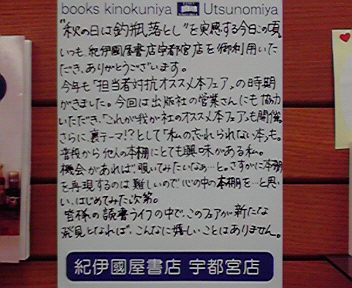 books kinokuniya Utsunomiya
"秋の日は釣瓶落とし"を実感する今日この頃
いつも紀伊國屋書店宇都宮店を御利用いた
だき、ありがとうございます。
今年も"担当者対抗オススメ本フェア"の時期
がきました。今回は出版社の営業さんにも協力
いただき、「これが我が社のオススメ本フェア」も開催。
さらに裏テーマ!?として「私の忘れられない本」も。
普段から他人の本棚にとても興味がある私。
機会があれば"覗いてみたいなぁ…"と。さすがに本棚
を再現するのは難しいので「心の中の本棚を…」と思
い、はじめてみた次第。
皆様の読書ライフの中で、このフェアが新たな
発見となれば"こんなに嬉しいことはありません。
紀伊國屋書店 宇都宮店